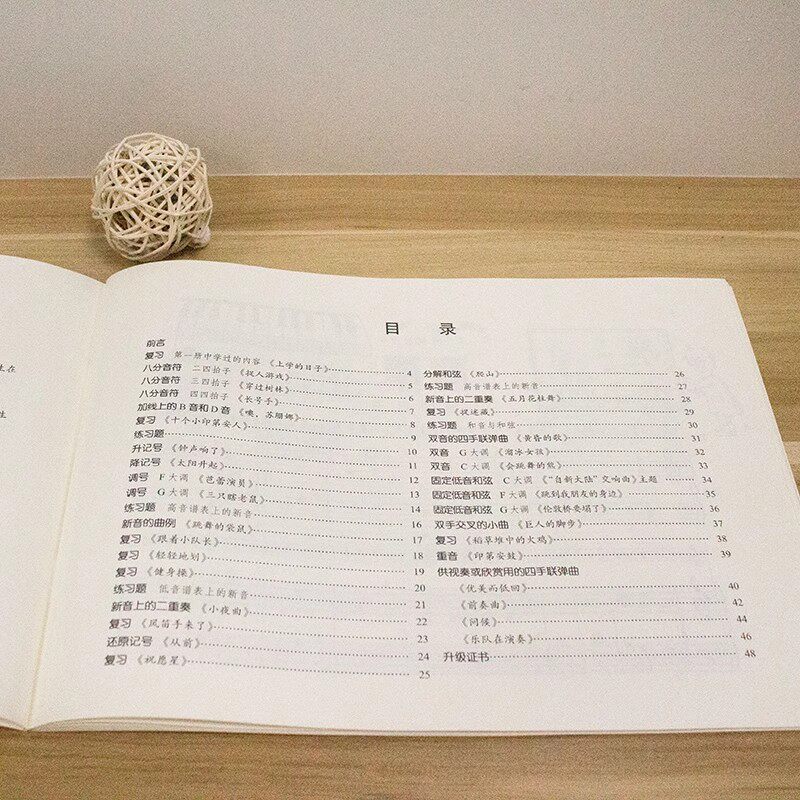 在
生
目 录
前言
复习 第一册中学过的内容《上学的日子》 4
八分音符 二四拍子《捉人游戏》 5
八分音符 三四拍子《穿过树林》 6
八分音符 四四拍子《长号手》 7
加线上的B音和D音《噢，苏珊娜》 8
复习《十个小印第安人》 9
练习题 10
升记号《钟声响了》 11
降记号《太阳升起》 12
调号 F大调《芭蕾演员》 13
调号 G大调《三只瞎老鼠》 14
练习题 高音谱表上的新音 16
新音的曲例《跳舞的袋鼠》 17
复习《跟着小队长》 18
复习《轻轻地划》 19
复习《健身操》 20
练习题 低音谱表上的新音 21
新音上的二重奏《小夜曲》 22
复习《风笛手来了》 23
还原记号《从前》 24
复习《祝愿星》 25
分解和弦《爬山》 26
练习题 高音谱表上的新音 27
新音上的二重奏《五月花柱舞》 28
复习《捉迷藏》 29
练习题 和音与和弦 30
双音的四手联弹曲《黄昏的歌》 31
双音 G大调《溜冰女孩》 32
双音 C大调《会跳舞的熊》 33
固定低音和弦 C大调《“自新大陆”交响曲》主题 34
固定低音和弦 F大调《跳到我朋友的身边》 35
固定低音和弦 G大调《伦敦桥要塌了》 36
双手交叉的小曲《巨人的脚步》 37
复习《稻草堆中的火鸡》 38
重音《印第安鼓》 39
供视奏或欣赏用的四手联弹曲
《优美而低回》 40
《前奏曲》 42
《问候》 44
《乐队在演奏》 46
升级证书 48